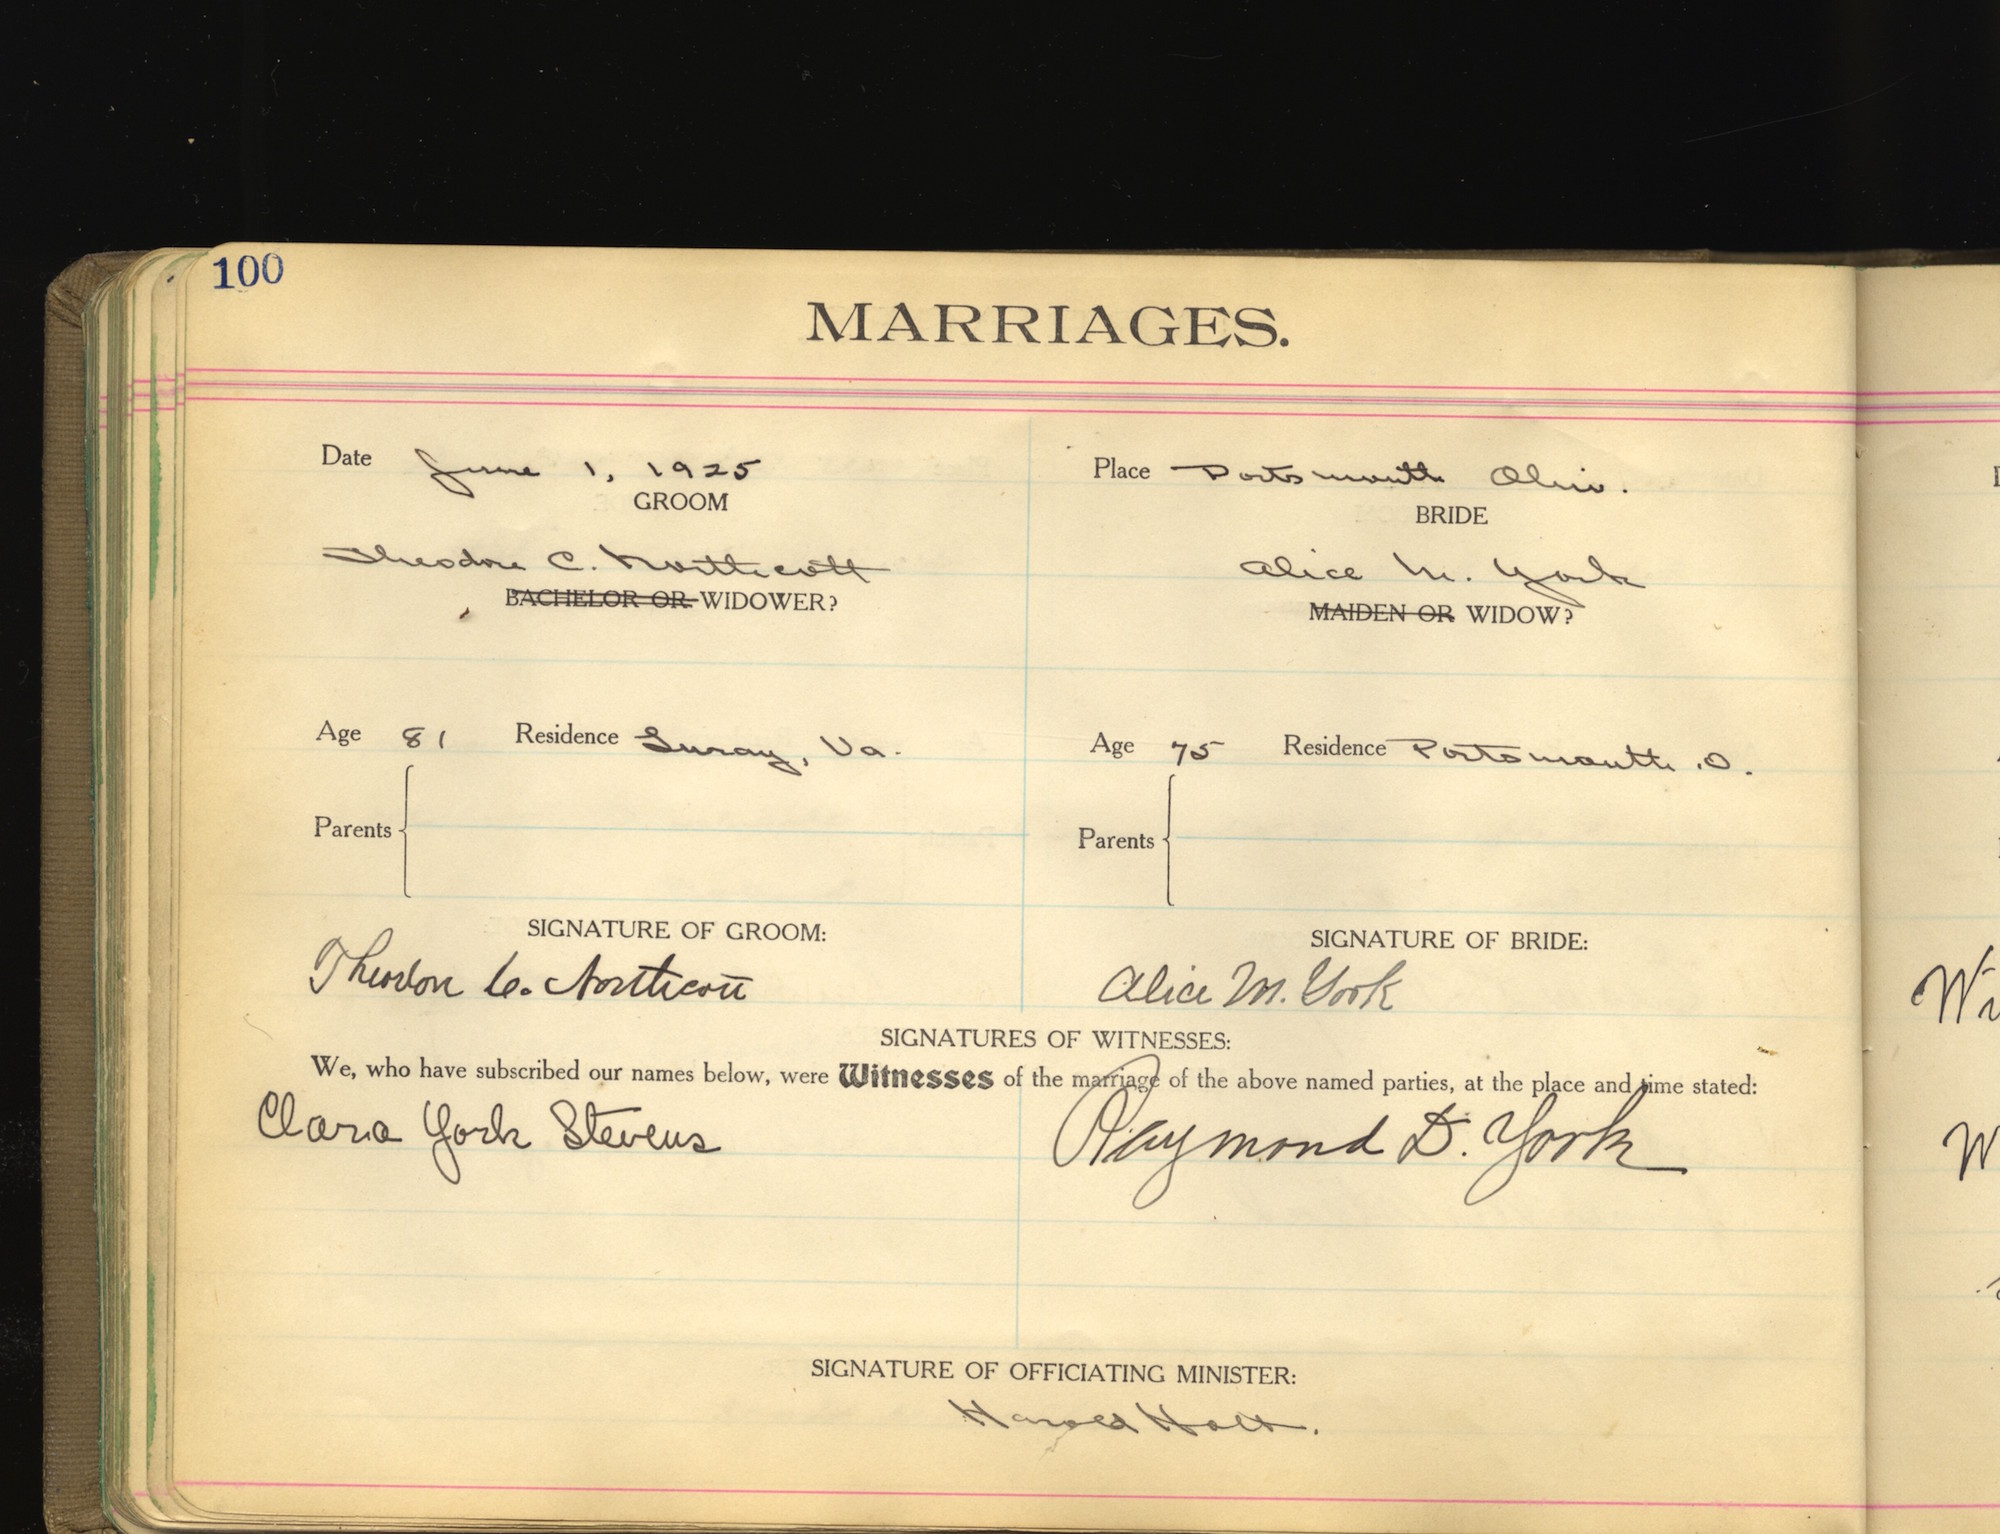 100
MARRIAGES.
Date June 1, 1925
Place Portsmouth Ohio.
GROOM
BRIDE
Theodore C. Northcott
Alice M. York
BACHELOR OR WIDOWER?
MAIDEN OR WIDOW?
Age 81 Residence Luray, Va.
Age 75 Residence Portsmouth, O.
Parents
Parents
SIGNATURE OF GROOM:
SIGNATURE OF BRIDE:
Theodore C. Northcott
Alice M. York
SIGNATURES OF WITNESSES:
We, who have subscribed our names below, were Witnesses of the marriage of the above named parties, at the place and time stated:
Clara York Stevens
Raymond D. York
SIGNATURE OF OFFICIATING MINISTER:
Harold Holt.